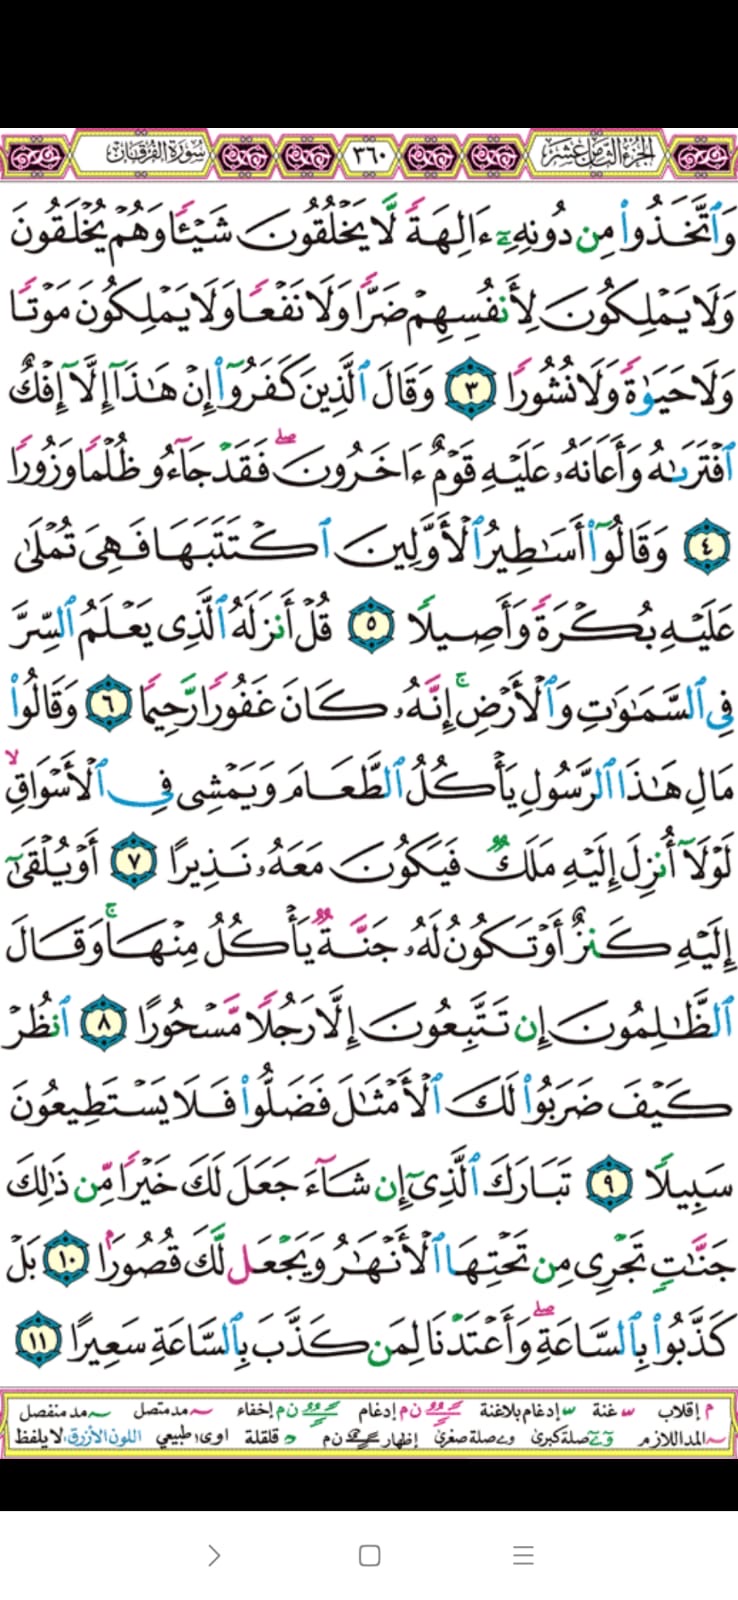 الجزء الثامن عشر ٣٦٠ سورة الفرقان
وَٱتَّخَذُوا۟ مِن دُونِهِۦٓ ءَالِهَةً لَّا يَخْلُقُونَ شَيْـًٔا وَهُمْ يُخْلَقُونَ
وَلَا يَمْلِكُونَ لِأَنفُسِهِمْ ضَرًّا وَلَا نَفْعًا وَلَا يَمْلِكُونَ مَوْتًا
وَلَا حَيَوٰةً وَلَا نُشُورًا ٣ وَقَالَ ٱلَّذِينَ كَفَرُوٓا۟ إِنْ هَـٰذَآ إِلَّآ إِفْكٌ
ٱفْتَرَىٰهُ وَأَعَانَهُۥ عَلَيْهِ قَوْمٌ ءَاخَرُونَ ۖ فَقَدْ جَآءُو ظُلْمًا وَزُورًا
٤ وَقَالُوٓا۟ أَسَـٰطِيرُ ٱلْأَوَّلِينَ ٱكْتَتَبَهَا فَهِىَ تُمْلَىٰ
عَلَيْهِ بُكْرَةً وَأَصِيلًا ٥ قُلْ أَنزَلَهُ ٱلَّذِى يَعْلَمُ ٱلسِّرَّ
فِى ٱلسَّمَـٰوَٰتِ وَٱلْأَرْضِ ۚ إِنَّهُۥ كَانَ غَفُورًا رَّحِيمًا ٦ وَقَالُوا۟
مَالِ هَـٰذَا ٱلرَّسُولِ يَأْكُلُ ٱلطَّعَامَ وَيَمْشِى فِى ٱلْأَسْوَاقِ ۙ
لَوْلَآ أُنزِلَ إِلَيْهِ مَلَكٌ فَيَكُونَ مَعَهُۥ نَذِيرًا ٧ أَوْ يُلْقَىٰٓ
إِلَيْهِ كَنزٌ أَوْ تَكُونُ لَهُۥ جَنَّةٌ يَأْكُلُ مِنْهَا ۚ وَقَالَ
ٱلظَّـٰلِمُونَ إِن تَتَّبِعُونَ إِلَّا رَجُلًا مَّسْحُورًا ٨ ٱنظُرْ
كَيْفَ ضَرَبُوا۟ لَكَ ٱلْأَمْثَـٰلَ فَضَلُّوا۟ فَلَا يَسْتَطِيعُونَ
سَبِيلًا ٩ تَبَارَكَ ٱلَّذِىٓ إِن شَآءَ جَعَلَ لَكَ خَيْرًا مِّن ذَٰلِكَ
جَنَّـٰتٍ تَجْرِى مِن تَحْتِهَا ٱلْأَنْهَـٰرُ وَيَجْعَل لَّكَ قُصُورًۢا ١٠ بَلْ
كَذَّبُوا۟ بِٱلسَّاعَةِ ۖ وَأَعْتَدْنَا لِمَن كَذَّبَ بِٱلسَّاعَةِ سَعِيرًا ١١
م إقلاب غنة إدغام بلاغنة ن م إدغام ن م إخفاء مد متصل مد منفصل
المد اللازم صلة كبرى صلة صغرى إظهار ن م قلقلة اوى طبيعي اللون الأزرق: لا يلفظ